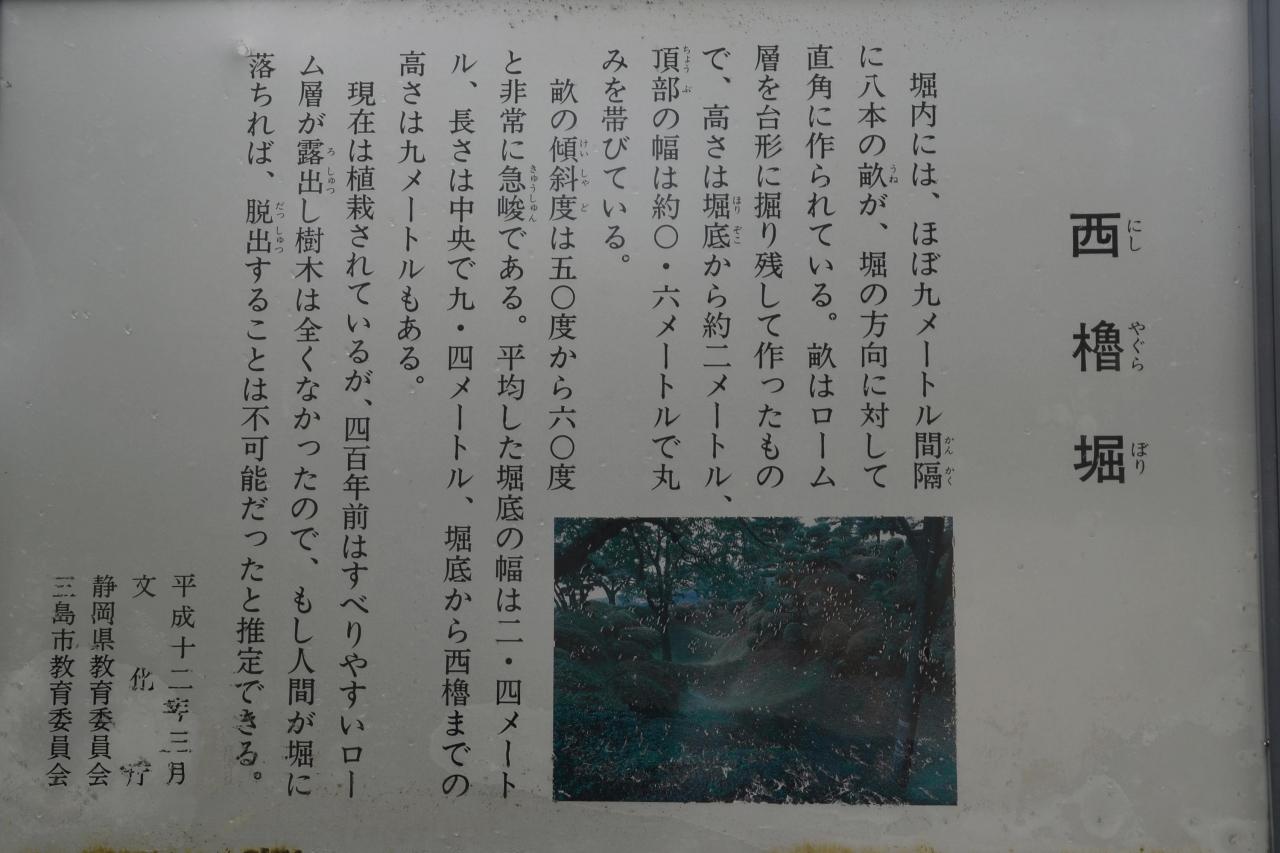 西櫓堀
堀内には、ほぼ九メートル間隔
に八本の畝が、堀の方向に対して
直角に作られている。畝はローム
層を台形に掘り残して作ったもの
で、高さは堀底から約二メートル、
頂部の幅は約〇・六メートルで丸
みを帯びている。
畝の傾斜度は五〇度から六〇度
と非常に急峻である。平均した堀底の幅は二・四メート
ル、長さは中央で九・四メートル、堀底から西櫓までの
高さは九メートルもある。
現在は植栽されているが、四百年前はすべりやすいロー
ム層が露出し樹木は全くなかったので、もし人間が堀に
落ちれば、脱出することは不可能だったと推定できる。
平成十二年三月
文化庁
静岡県教育委員会
三島市教育委員会